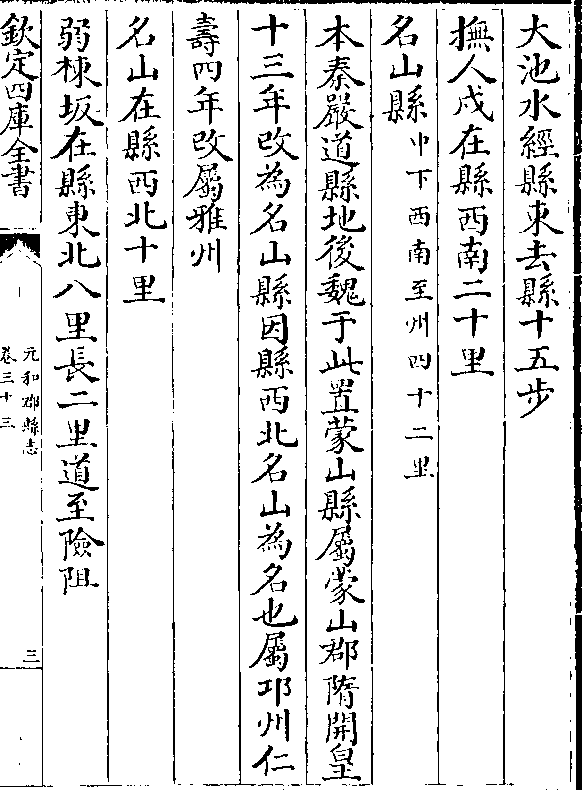 大池水經縣東去縣十五步
撫人戍在縣西南二十里
名山縣中下西南至州四十二里
本秦嚴道縣地後魏于此置蒙山縣屬蒙山郡隋開皇
十三年改為名山縣因縣西北名山為名也屬邛州仁
壽四年改屬雅州
名山在縣西北十里
弱棟坂在縣東北八里長二里道至險阻
欽定四庫全書
元和郡縣志
卷三十三
三